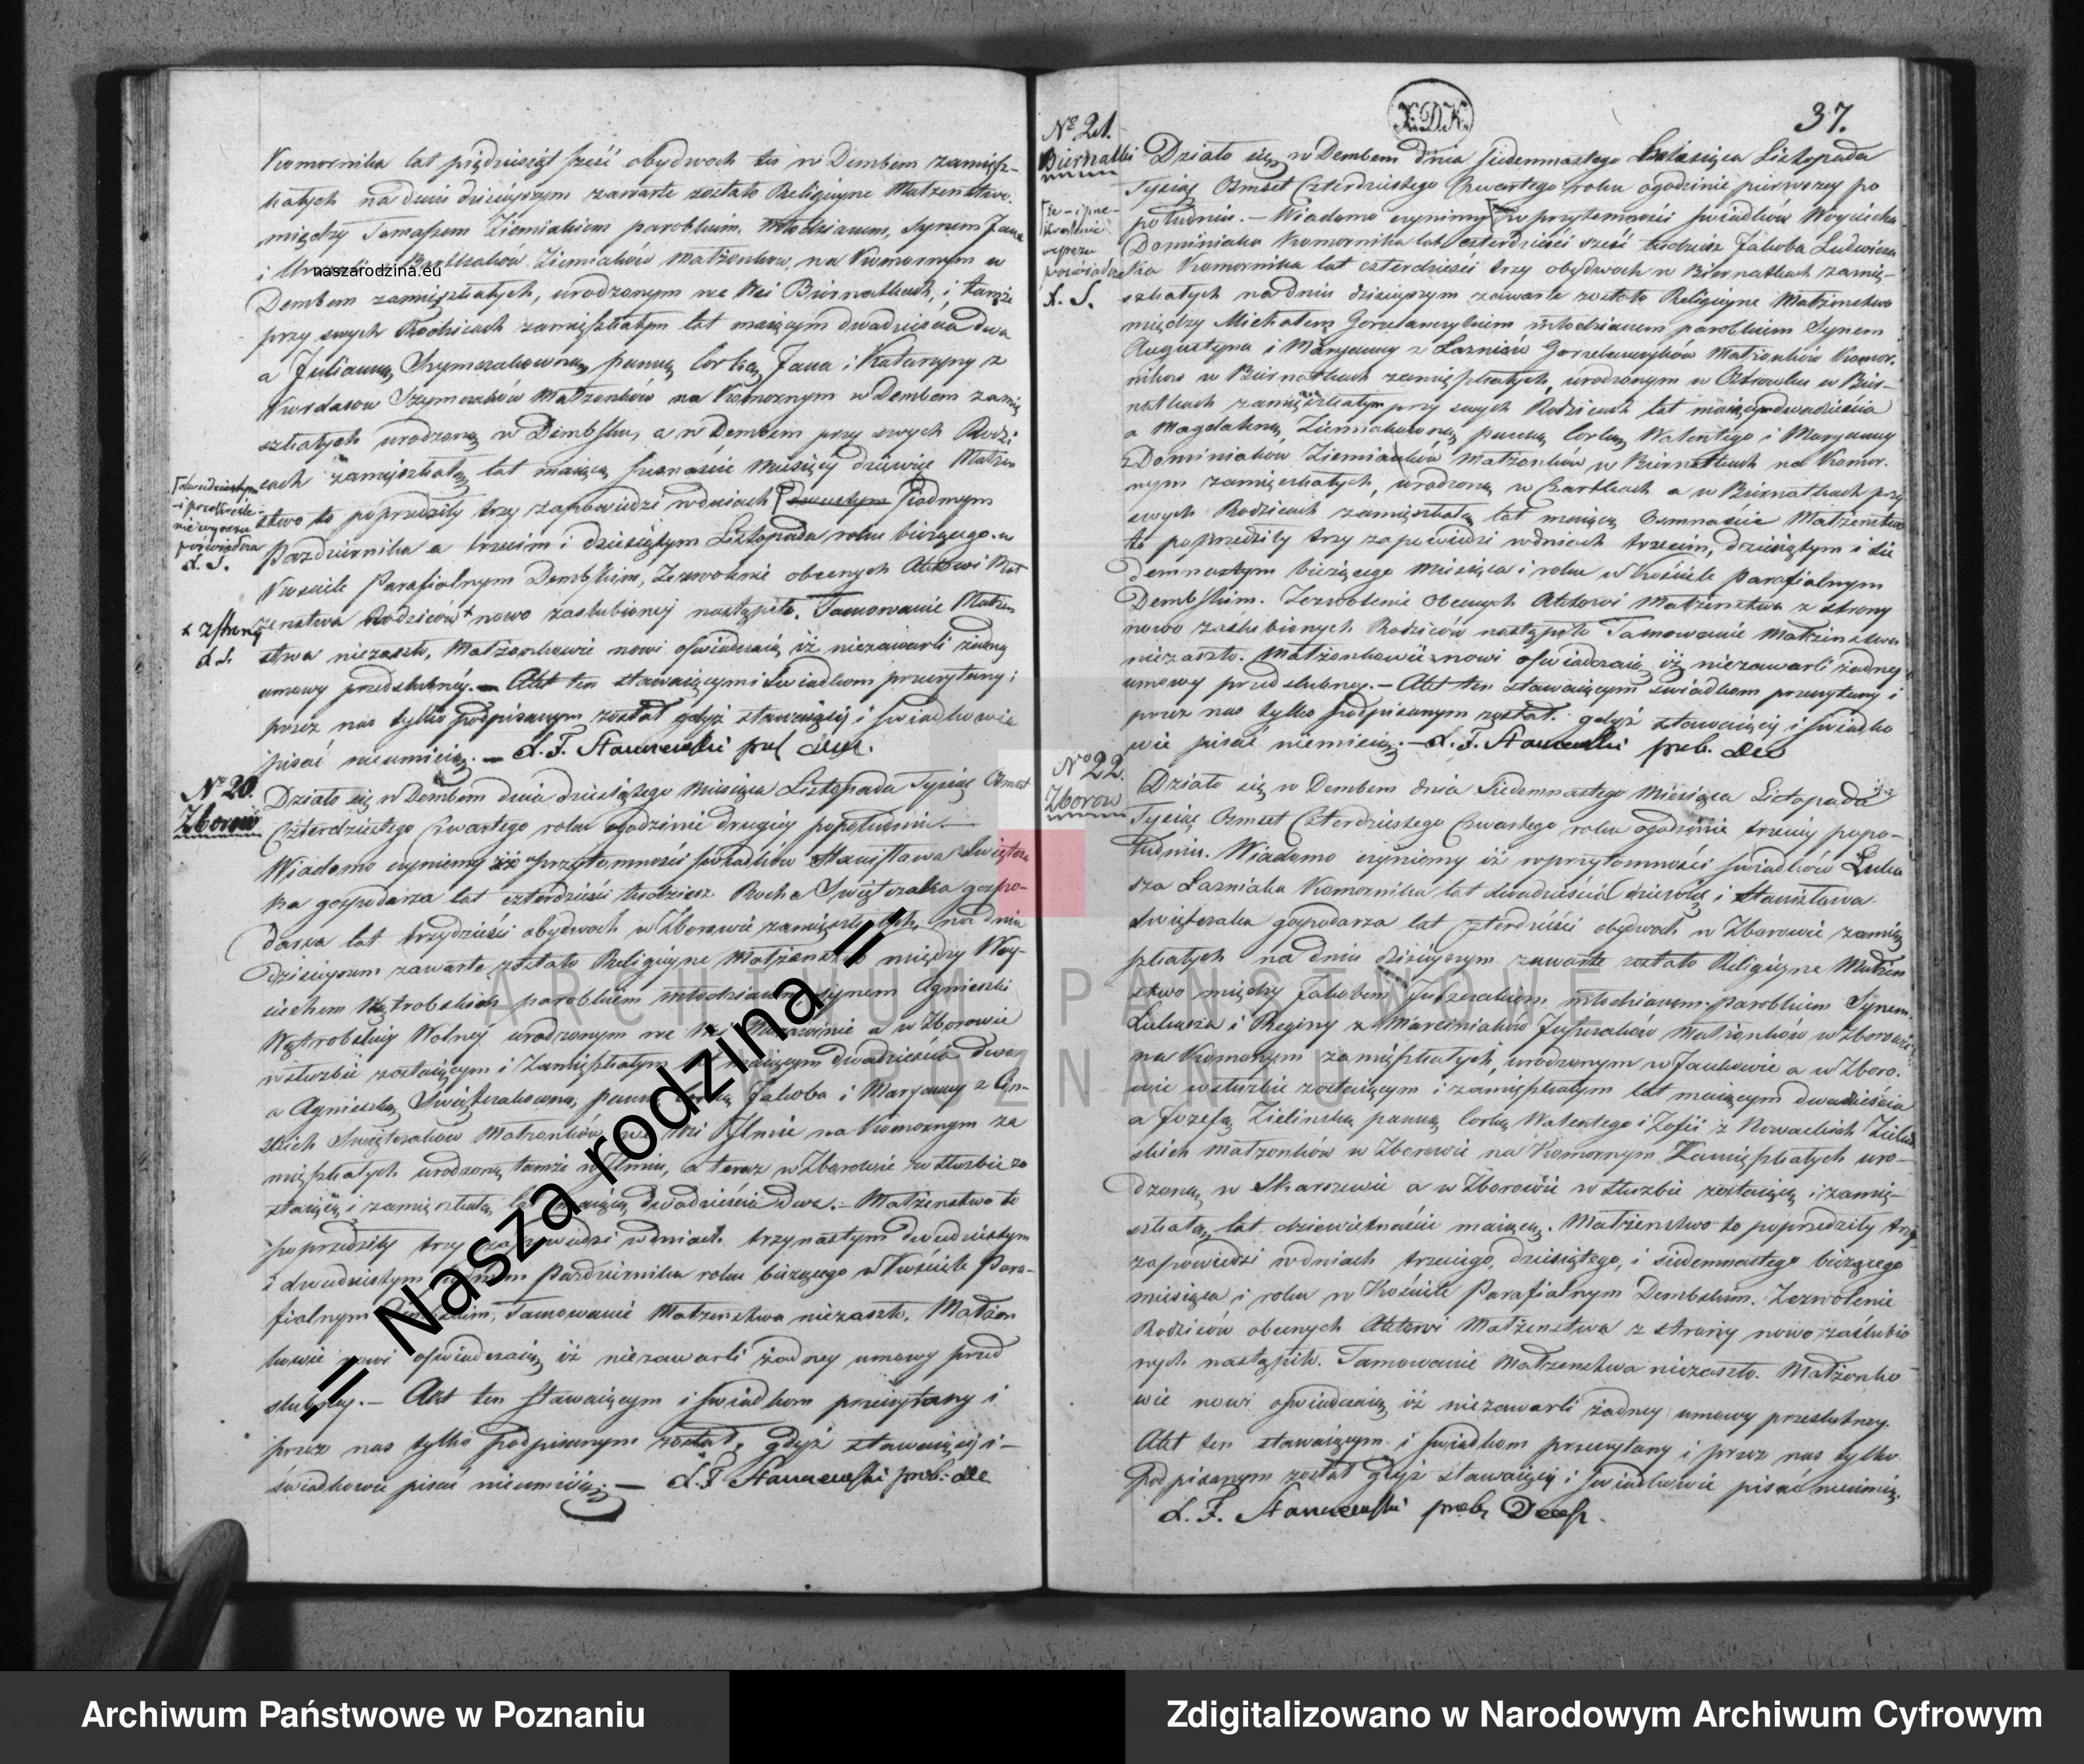 Komornika lat pięćdziesiąt sześć obydwoch tu w Dembem zamiesz-
kałych na dniu dzisieyszym zawarte zostało Religijne Małżeństwo
między Tomaszem Ziemiakiem parobkiem, młodzianem, Synem Jana
i Ziemiaków Małżonków, na Komornym w
naszarodzina.eu
Dembem zamięszkałych, urodzonym we Wsi Biernatkach, i tamże
przy swych Rodzicach zamięszkałym lat maiącym dwadzieścia dwa
a Julianną Szymczakowną panną Corką Jana i Katarzyny z
Szymczaków Małżonków na Komornym w Dembem zamię
szkałych urodzoną w Dembsku, a w Dembem przy swych Rodzi
cach zamięszkałą lat maiącą szesnaście Miesięcy dziewięć Małżeń
stwo to poprzedziły trzy zapowiedzi w dniach siodmym
Pazdziernika a trzecim i dziesiątym Listopada roku bieżącego w
Kosciele Parafialnym Dembskim, Zezwolenie obecnych Aktowi Mał
żenstwa Rodzicow + nowo zaslubioney nastąpiło. Tamowanie Małżeń
stwa niezaszło, Małżonkowie nowi oswiadczaią iż niezawarli żadney
umowy przedslubnéy. — Akt ten stawaiącymi Swiadkom przeczytany i
przez nas tylko podpisanym został gdyż stawaiący i swiadkowie
pisać nieumieią. —
+ z strony
No 20.
Zborow
Działo się w Dembem dnia dziesiątego Miesiąca Listopada Tysiąc Osmset
Czterdziestego Czwartego roku ogodzinie drugiey popołudniu. —
Wiadomo czyniemy iż w przytomności świadków Stanisława Swiętcza
ka gospodarza lat czterdzieści tudzież Rocha Swiętczaka gospo-
darza lat trzydzieści obydwoch w Zborowie zamięszkałych, na dniu
dzisieyszem zawarte zostało Religijne Małżenstwo między Woy-
ciechem Wątrobskim parobkiem młodzianem, Synem Agnieszki
Wątrobskiey Wolney urodzonym we Wsi a w Zborowie
w służbie zostaiącym i Zamięszkałym lat maiącym dwadzieścia dwa
a Agnieszką Swiętczakowną, panną Corką Jakoba i Maryanny z
Swiętczakow Małżonków we Wsi na Komornym za
mięszkałych urodzoną tamże w a teraz w Zborowie w służbie zo
staiącą i zamięszkałą lat maiącą dwadzieścia dwa. — Małżenstwo to
poprzedziły trzy zapowiedzi w dniach trzynastym dwudziestym
i dwudziestym siodmym Pazdziernika roku bieżącego w Kościele Para-
fialnym Dembskim, Tamowanie Małżenstwa niezaszło. Małżon
kowie nowi oświadczaią iż niezawarli żadney umowy przed
slubney. — Akt ten stawaiącym i swiadkom przeczytany i
przez nas tylko podpisanym został, gdyż stawaiący i —
świadkowie pisać nieumieią. —
X.D.K.
37.
No 21.
Biernatki
Działo się w Dembem dnia siedemnastego Miesiąca Listopada
Tysiąc Osmset Czterdziestego Czwartego roku ogodzinie pierwszey po
południu. — Wiadomo czynimy w przytomności swiadków Woyciecha
Dominiaka Komornika lat czterdzieści sześć tudzież Jakoba Ludwicza
ka Komornika lat czterdzieści trzy obydwoch w Biernatkach zamię-
szkałych na dniu dzisieyszym zawarte zostało Religijne Małżenstwo
między Michałem Gorzelanczykiem młodzianem parobkiem Synem
Augustyna i Maryanny z Lazniów Gorzelanczyków Małżonków Komor.
ników w Biernatkach zamięszkałych, urodzonym w Ostrowku w Bier-
natkach zamięszkałym przy swych Rodzicach lat maiącym dwadzieścia
a Magdaleną Ziemiakowną panną Corką Walentego i Maryanny
z Dominiaków Ziemiaków Małżonków w Biernatkach na Komor.
nym zamieszkałych, urodzoną w Czartkach a w Biernatkach przy
swych Rodzicach zamięszkałą lat maiącą Osmnaście Małżenstwo
to poprzedziły trzy zapowiedzi w dniach trzecim, dziesiątym i sie
demnastym bieżącego miesiąca i roku w Kościele parafialnym
Dembskim. Zezwolenie Obecnych Aktowi Małżenstwa z strony
nowo zaslubionych Rodziców nastąpiło Tamowanie Małżenstwa
niezaszło. Małżonkowie nowi oswiadczaią iż niezawarli żadney
umowy przedslubney. — Akt ten stawaiącym swiadkom przeczytany i
przez nas tylko podpisanym został. gdyż stawaiący i swiadko
wie pisać nieumieią. —
No 22.
Zborow
Działo się w Dembem dnia Siedemnastego Miesiąca Listopada
Tysiąc Osmset Czterdziestego Czwartego roku ogodzinie trzeciey popo-
łudniu. Wiadomo czyniemy iż w przytomności swiadków Łuka
sza Lazniaka Komornika lat dwadzieścia dziewięć i Stanisława
Swiętczaka gospodarza lat czterdzieści obydwoch w Zborowie zamię
szkałych na dniu dzisieyszym zawarte zostało Religijne Małżen
stwo między Jakobem Juszczakiem młodzianem parobkiem Synem
Łukasza i Reginy z Marciniaków Juszczaków Małżonków w Zborowie
na Komornym zamięszkałych, urodzonym w Jankowie a w Zboro.
wie w służbie zostaiącym i zamięszkałym lat maiącym dwadzieścia
a Jozefą Zielinską panną Corką Walentego i Zofii z Nowackich Zielin
skich małżonków w Zborowie na Komornym Zamięszkałych uro-
dzoną w Skarszewie a w Zborowie w służbie zostaiącą i zamię-
szkałą, lat dziewietnaście maiącą. Małżenstwo to poprzedziły trzy
zapowiedzi w dniach trzeciego, dziesiątego, i siedemnastego bieżącego
miesiąca i roku w Kościele Parafialnym Dembskim. Zezwolenie
Rodziców obecnych Aktowi Małżenstwa z strony nowo zaślubio
nych nastąpiło. Tamowanie Małżenstwa niezaszło. Małżonko
wie nowi oswiadczaią iż niezawarli żadney umowy przeslubney.
Akt ten stawaiącym i swiadkom przeczytany i przez nas tylko
podpisanym został gdyż stawaiący i swiadkowie pisać nieumieią.
ARCHIWUM PAŃSTWOWE
W POZNANIU
= Nasza rodzina =
Archiwum Państwowe w Poznaniu
Zdigitalizowano w Narodowym Archiwum Cyfrowym